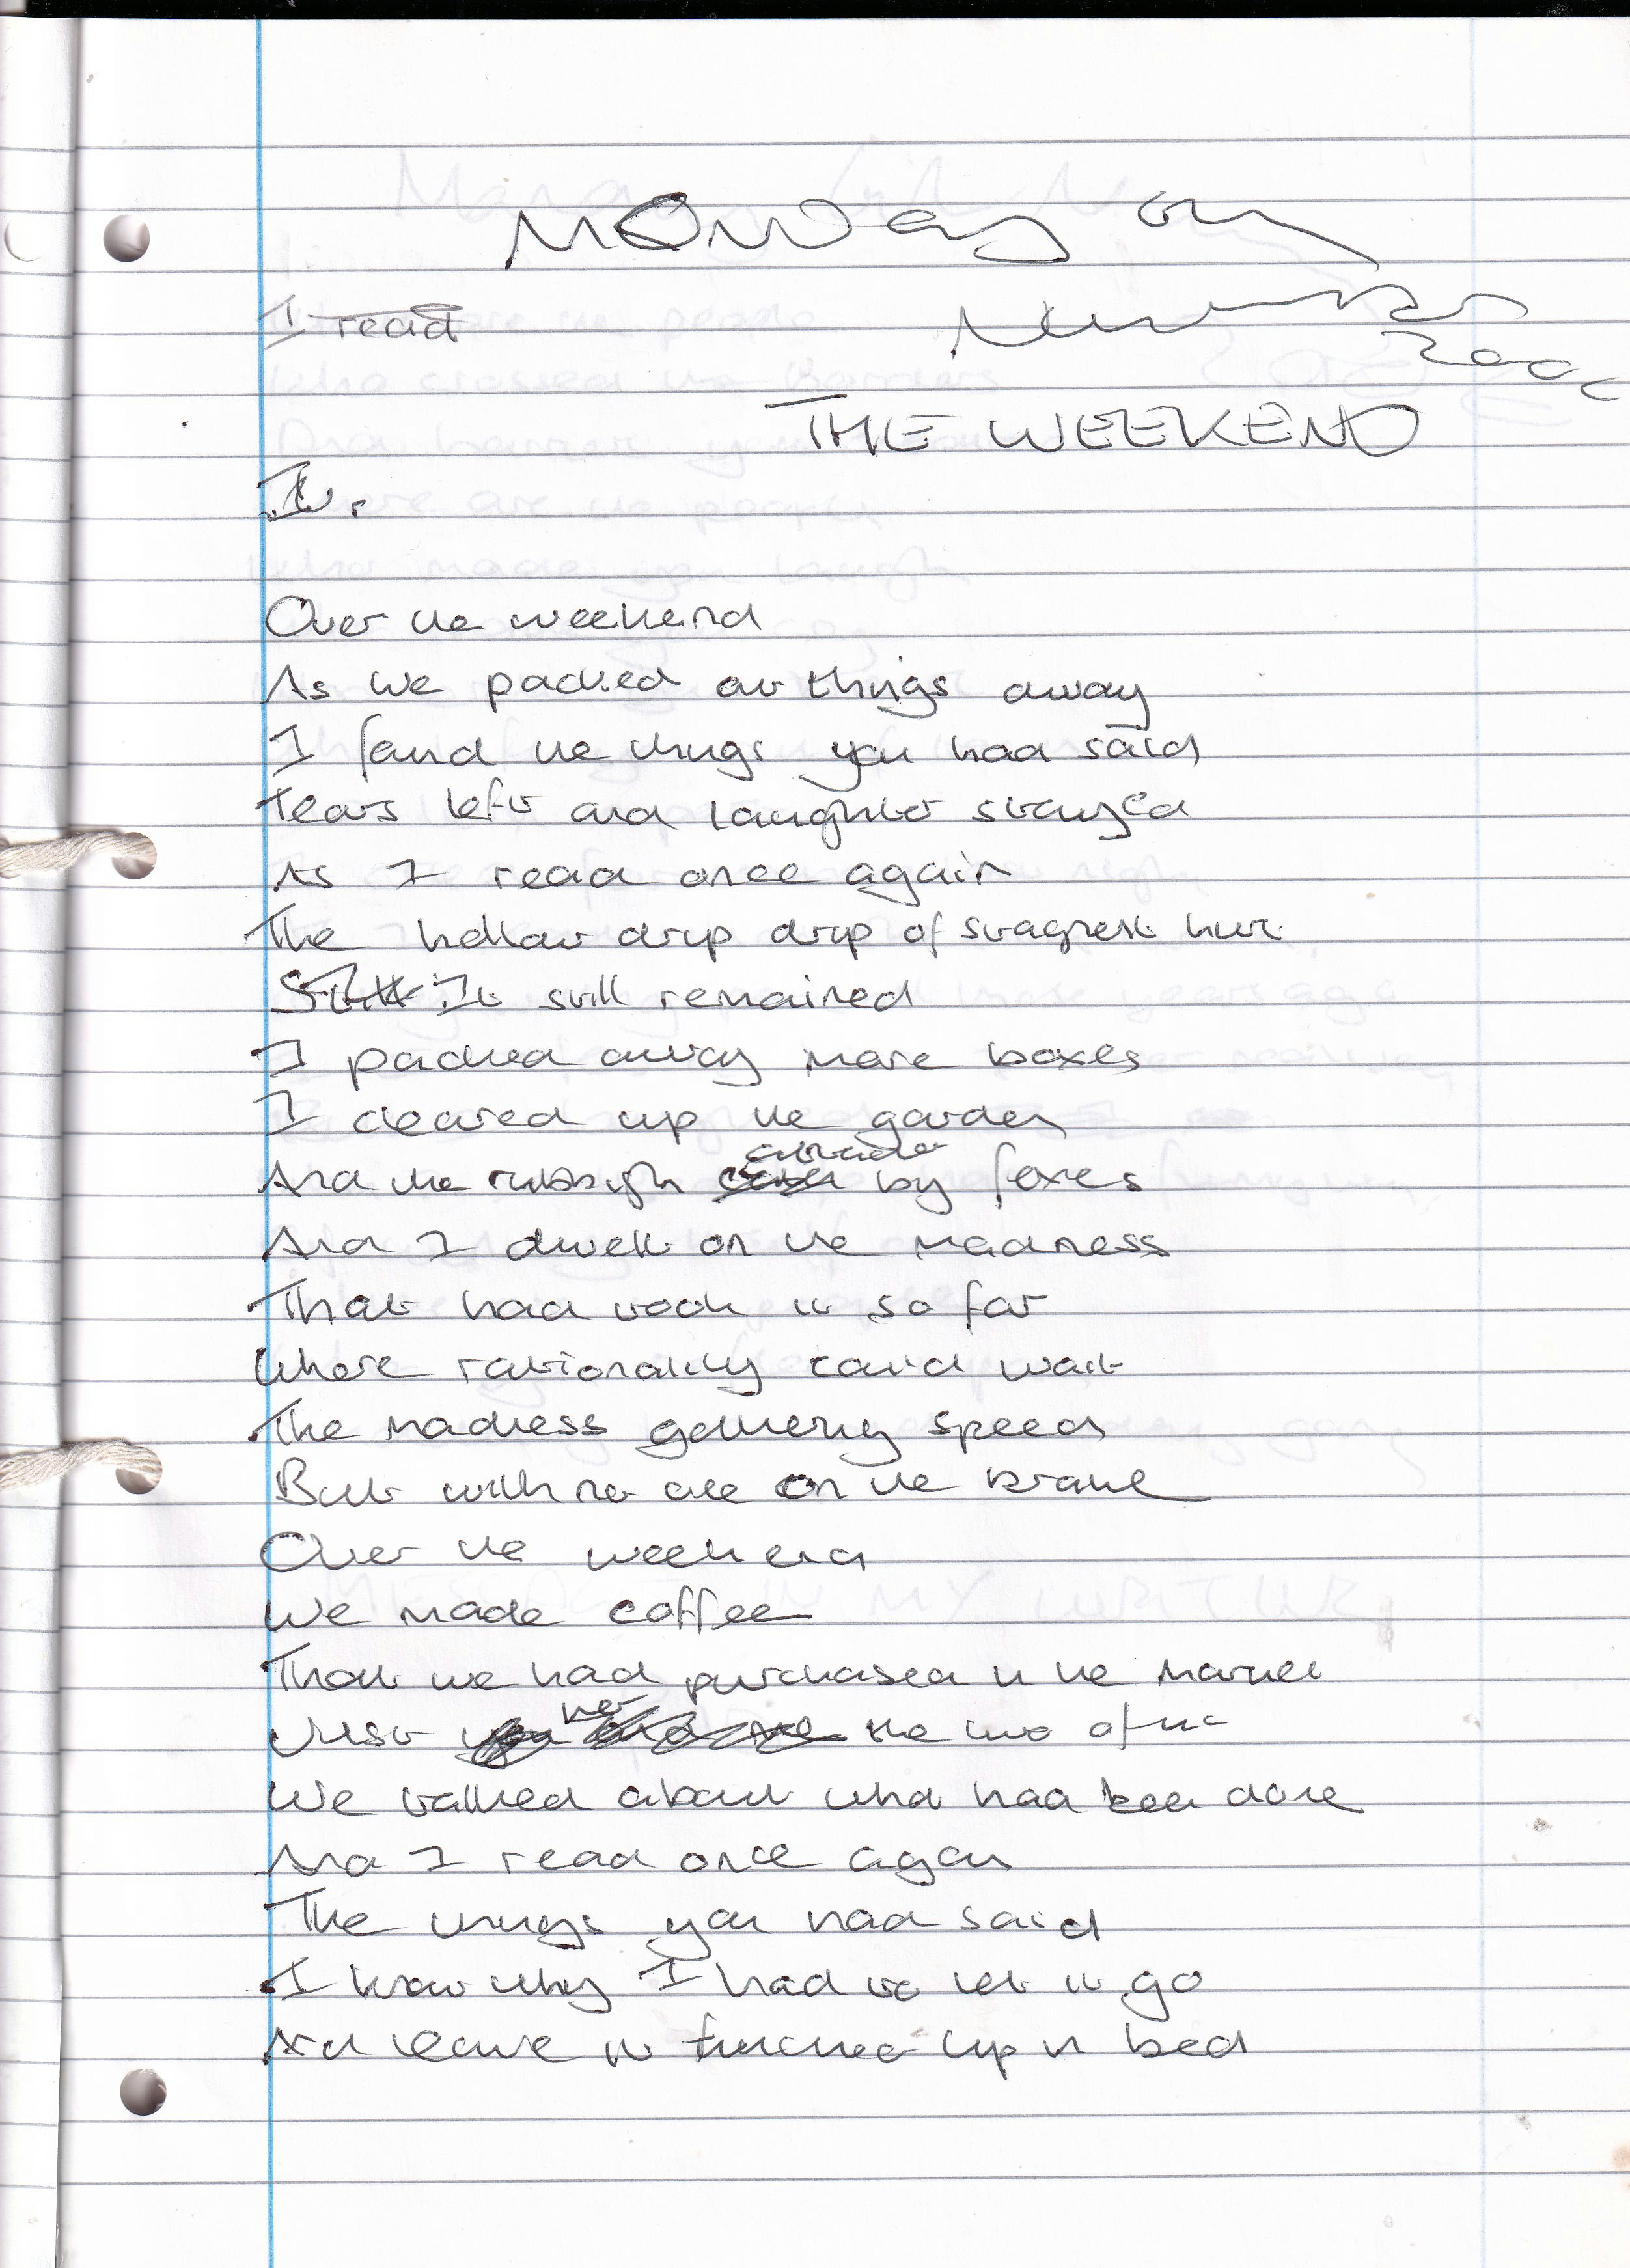 Monday 6th
November
200
I read
THE WEEKEND
Over the weekend
As we packed our things away
I found the things you had said
Tears left and laughter stayed
As I read once again
The hollow drip drip of stagnent hurt
Still It still remained
I packed away more boxes
I cleared up the garden
And the rubbish by foxes
And I dwelt on the madness
That had took it so far
Where rationality could wait
The madness gathering speed
But with no one on the brake
Over the weekend
We made coffee
That we had purchased in the market
Just the two of us
We talked about what had been done
And I read once again
The things you had said
I know why I had to let it go
And leave it tucked up in bed